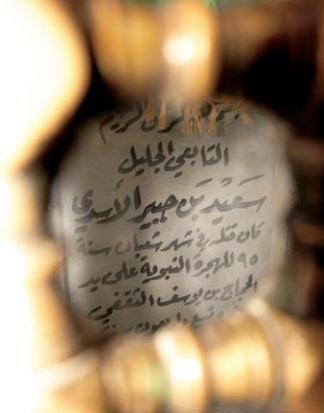 الرحمن الرحيم
التابعي الجليل
سَعيْد بَن جبير الأسدي
كان قتله في شهر شعبان سنة
٩٥ للهجرة النبوية على يد
الحجاج بن يوسف الثقفي